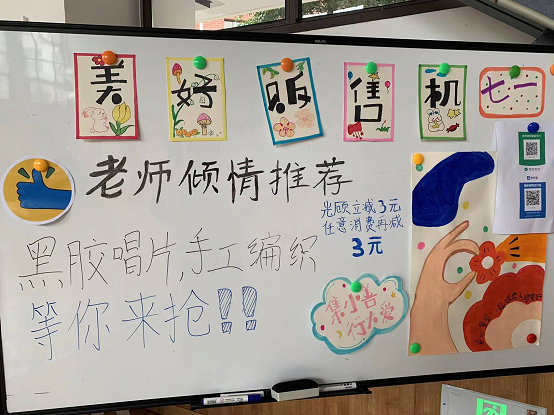 美好贩售机
七一
老师倾情推荐
光顾立减3元
任意消费再减
3元
黑胶唱片,手工编织
等你来抢!!
集小善
行大爱